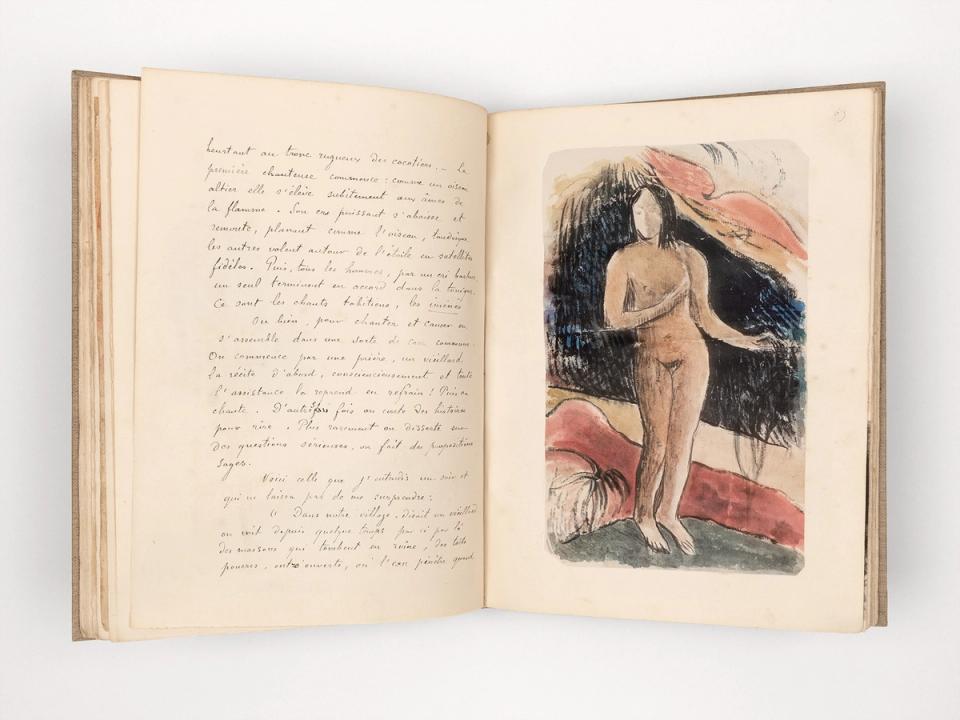 heurtant au tronc rugueux des cocotiers. — La
première chanteuse commence : comme un oiseau
altier elle s'élève subitement aux âmes de
la flamme. Son cri puissant s'abaisse et
remonte, planant comme l'oiseau, tandis que
les autres volent autour de l'étoile en satellites
fidèles. Puis, tous les hommes, par un cri barbare,
un seul terminent en accord dans la tonique.
Ce sont les chants tahitiens, les iménés
Ou bien, pour chanter et causer on
s'assemble dans une sorte de case commune.
On commence par une prière, un vieillard
la récite d'abord, consciencieusement et toute
l'assistance la reprend en refrain ! Puis on
chante. D'autres fois on conte des histoires
pour rire. Plus rarement on disserte sur
des questions sérieuses, on fait des propositions
sages.
Voici celle que j'entendis un soir et
qui ne laissa pas de me surprendre :
« Dans notre village, disait un vieillard
on voit depuis quelque temps par ci par là
des maisons qui tombent en ruine, des toits
pourris, entr'ouverts, où l'eau pénètre quand